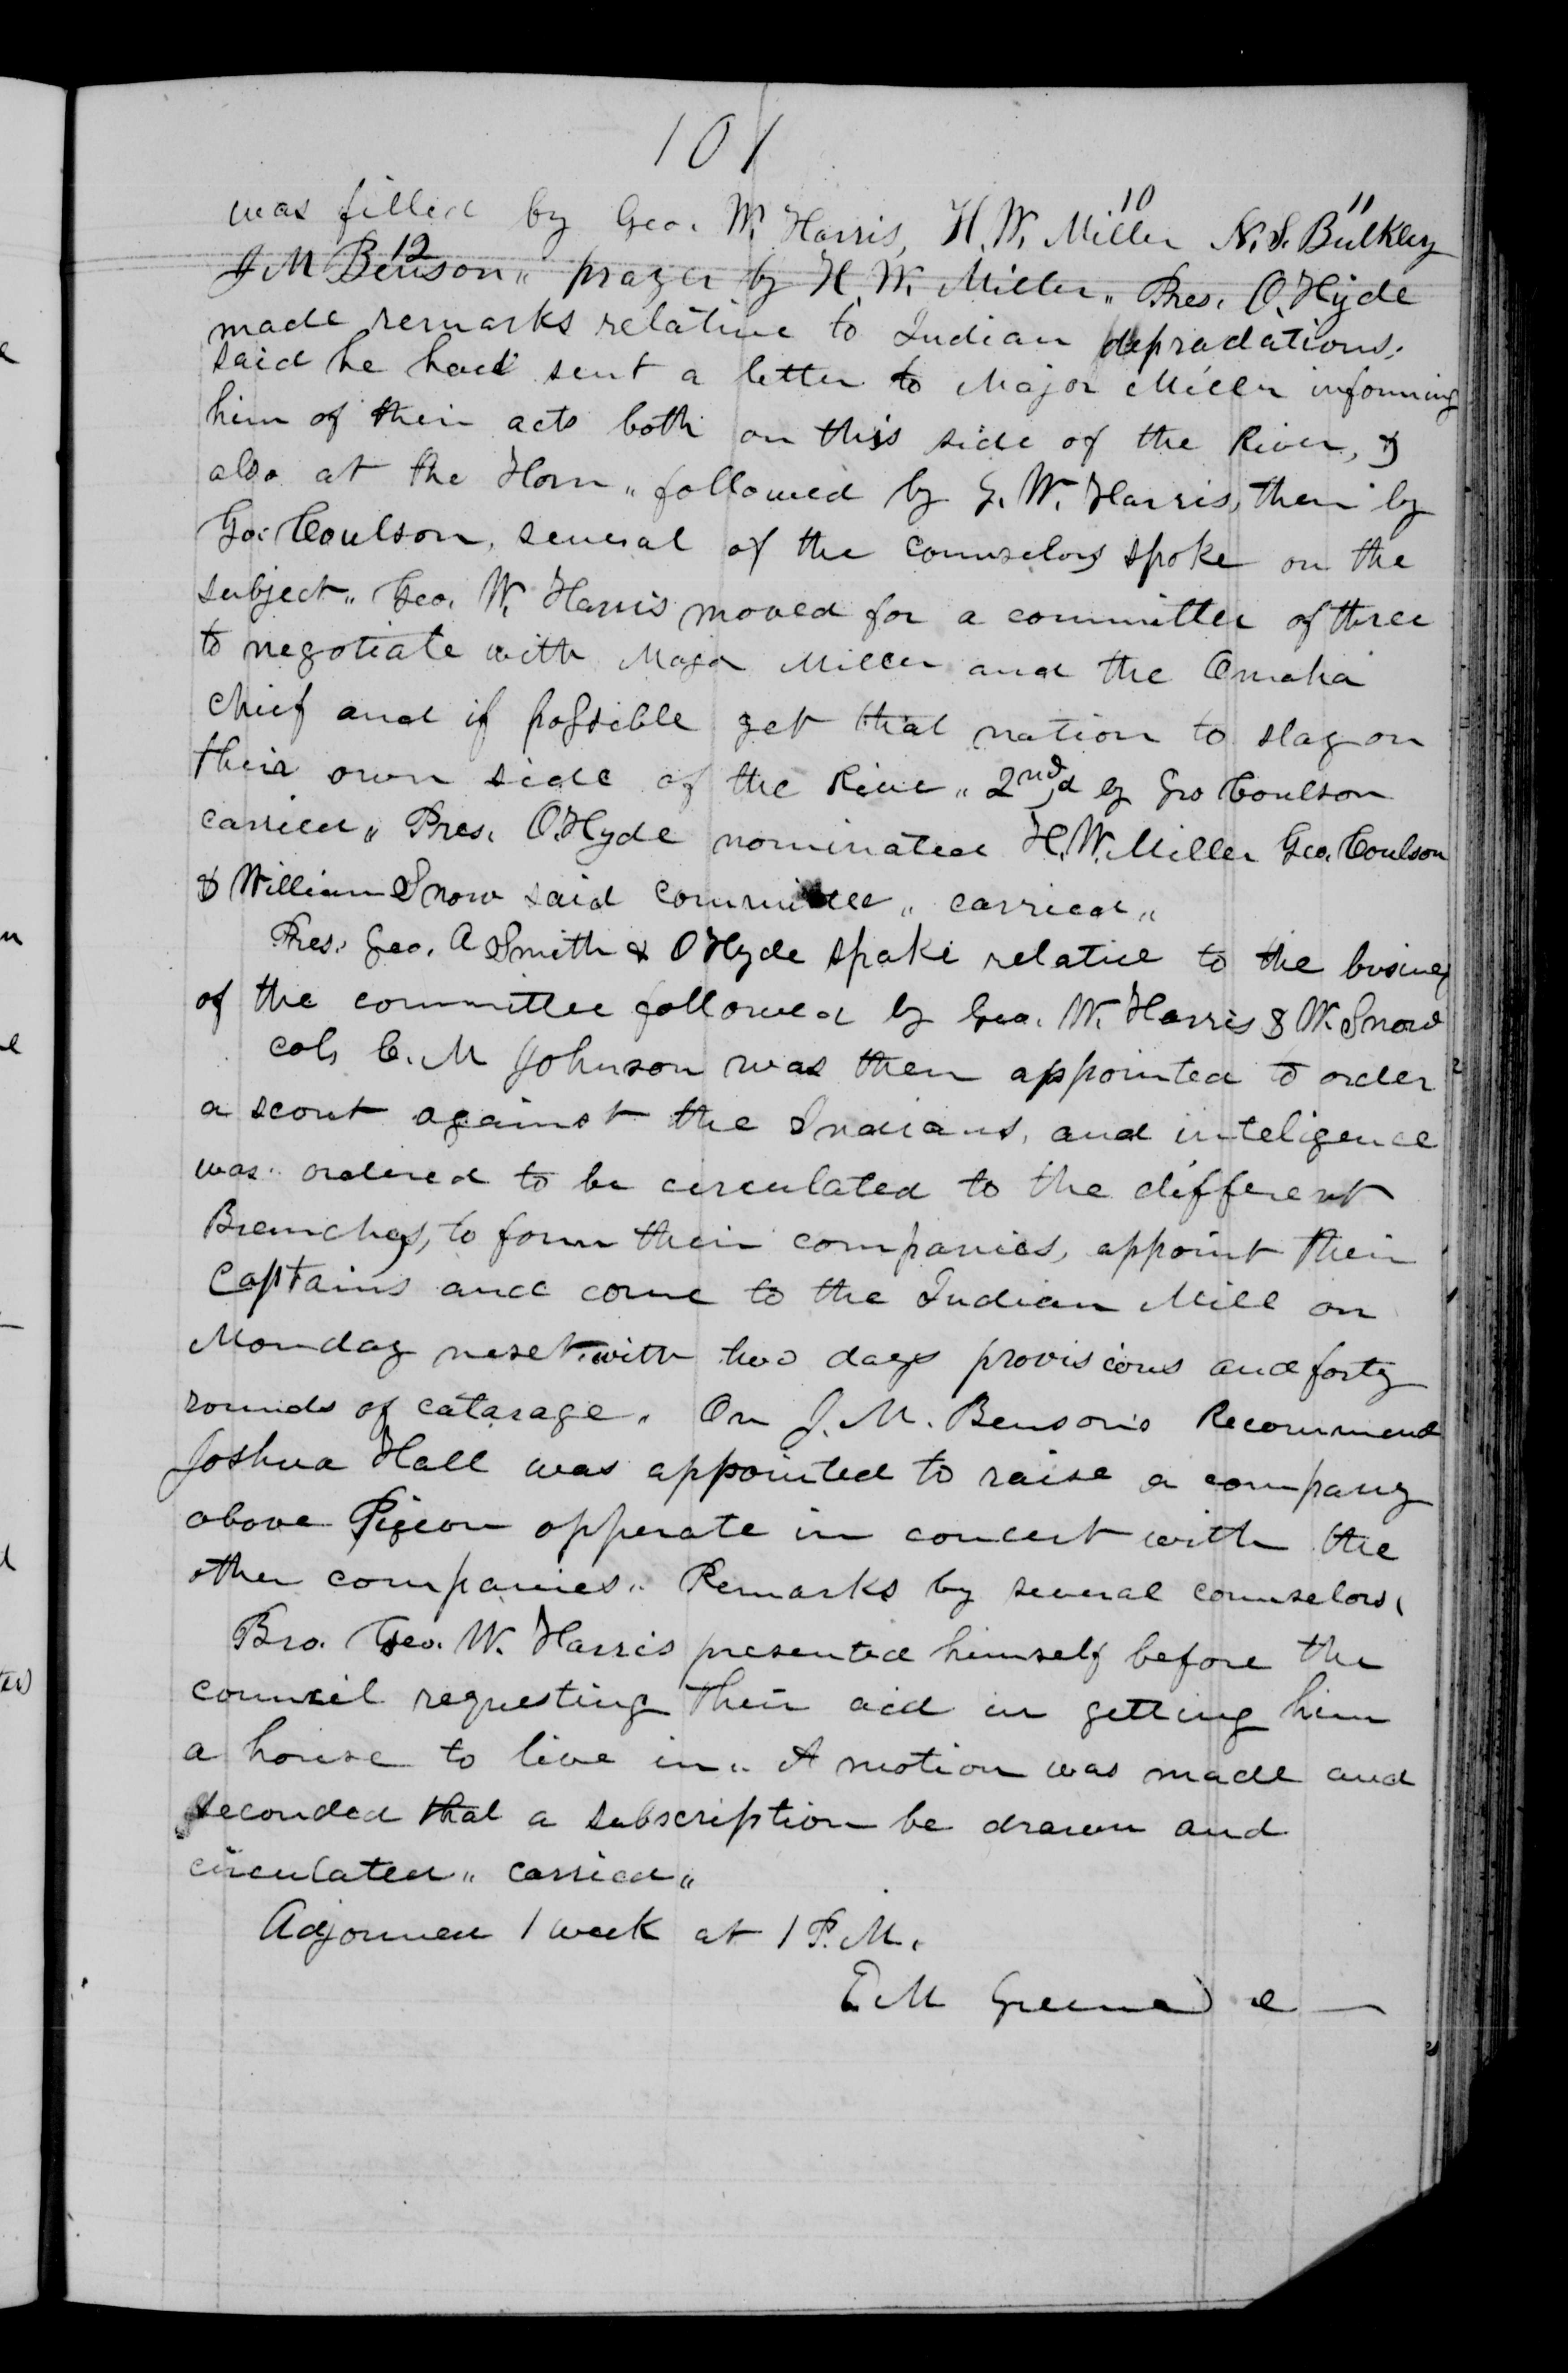 101
was filled by Geo. W. Harris, H. W. Miller 10 N. S. Bulkley 11
J M Benson 12 „ prayer by H. W. Miller „ Pres. O. Hyde
made remarks relative to Indian depradations,
said he had sent a letter to Major Miller informing
him of their acts both on this side of the River, &
also at the Horn „ followed by G. W. Harris, then by
Geo. Coulson, several of the counselors spoke on the
subject „ Geo. W. Harris moved for a committee of three
to negotiate with Major Miller and the Omaha
chief and if possible get that nation to stay on
their own side of the River „ 2nd,d by Geo Coulson
carried „ Pres. O. Hyde nominated H. W. Miller Geo. Coulson
& William Snow said committee „ carried „
Pres. Geo. A Smith & O Hyde spoke relative to the busines
of the committee followed by Geo. W. Harris & W. Snow
col, C. M Johnson was then appointed to order
a scout against the Indians, and inteligence
was ordered to be circulated to the different
Branches, to form their companies, appoint their
Captains and come to the Indian Mill on
Monday next, with two days provisions and forty
rounds of catarage. On J. M. Benson's Recommend
Joshua Hall was appointed to raise a company
above Pigeon opperate in concert with the
other companies „ Remarks by several counselors,
Bro. Geo. W. Harris presented himself before the
council requesting their aid in getting him
a house to live in „ A motion was made and
seconded that a subscription be drawn and
circulated „ carried „
Adjourned 1 week at 1 P. M.
E M Greene